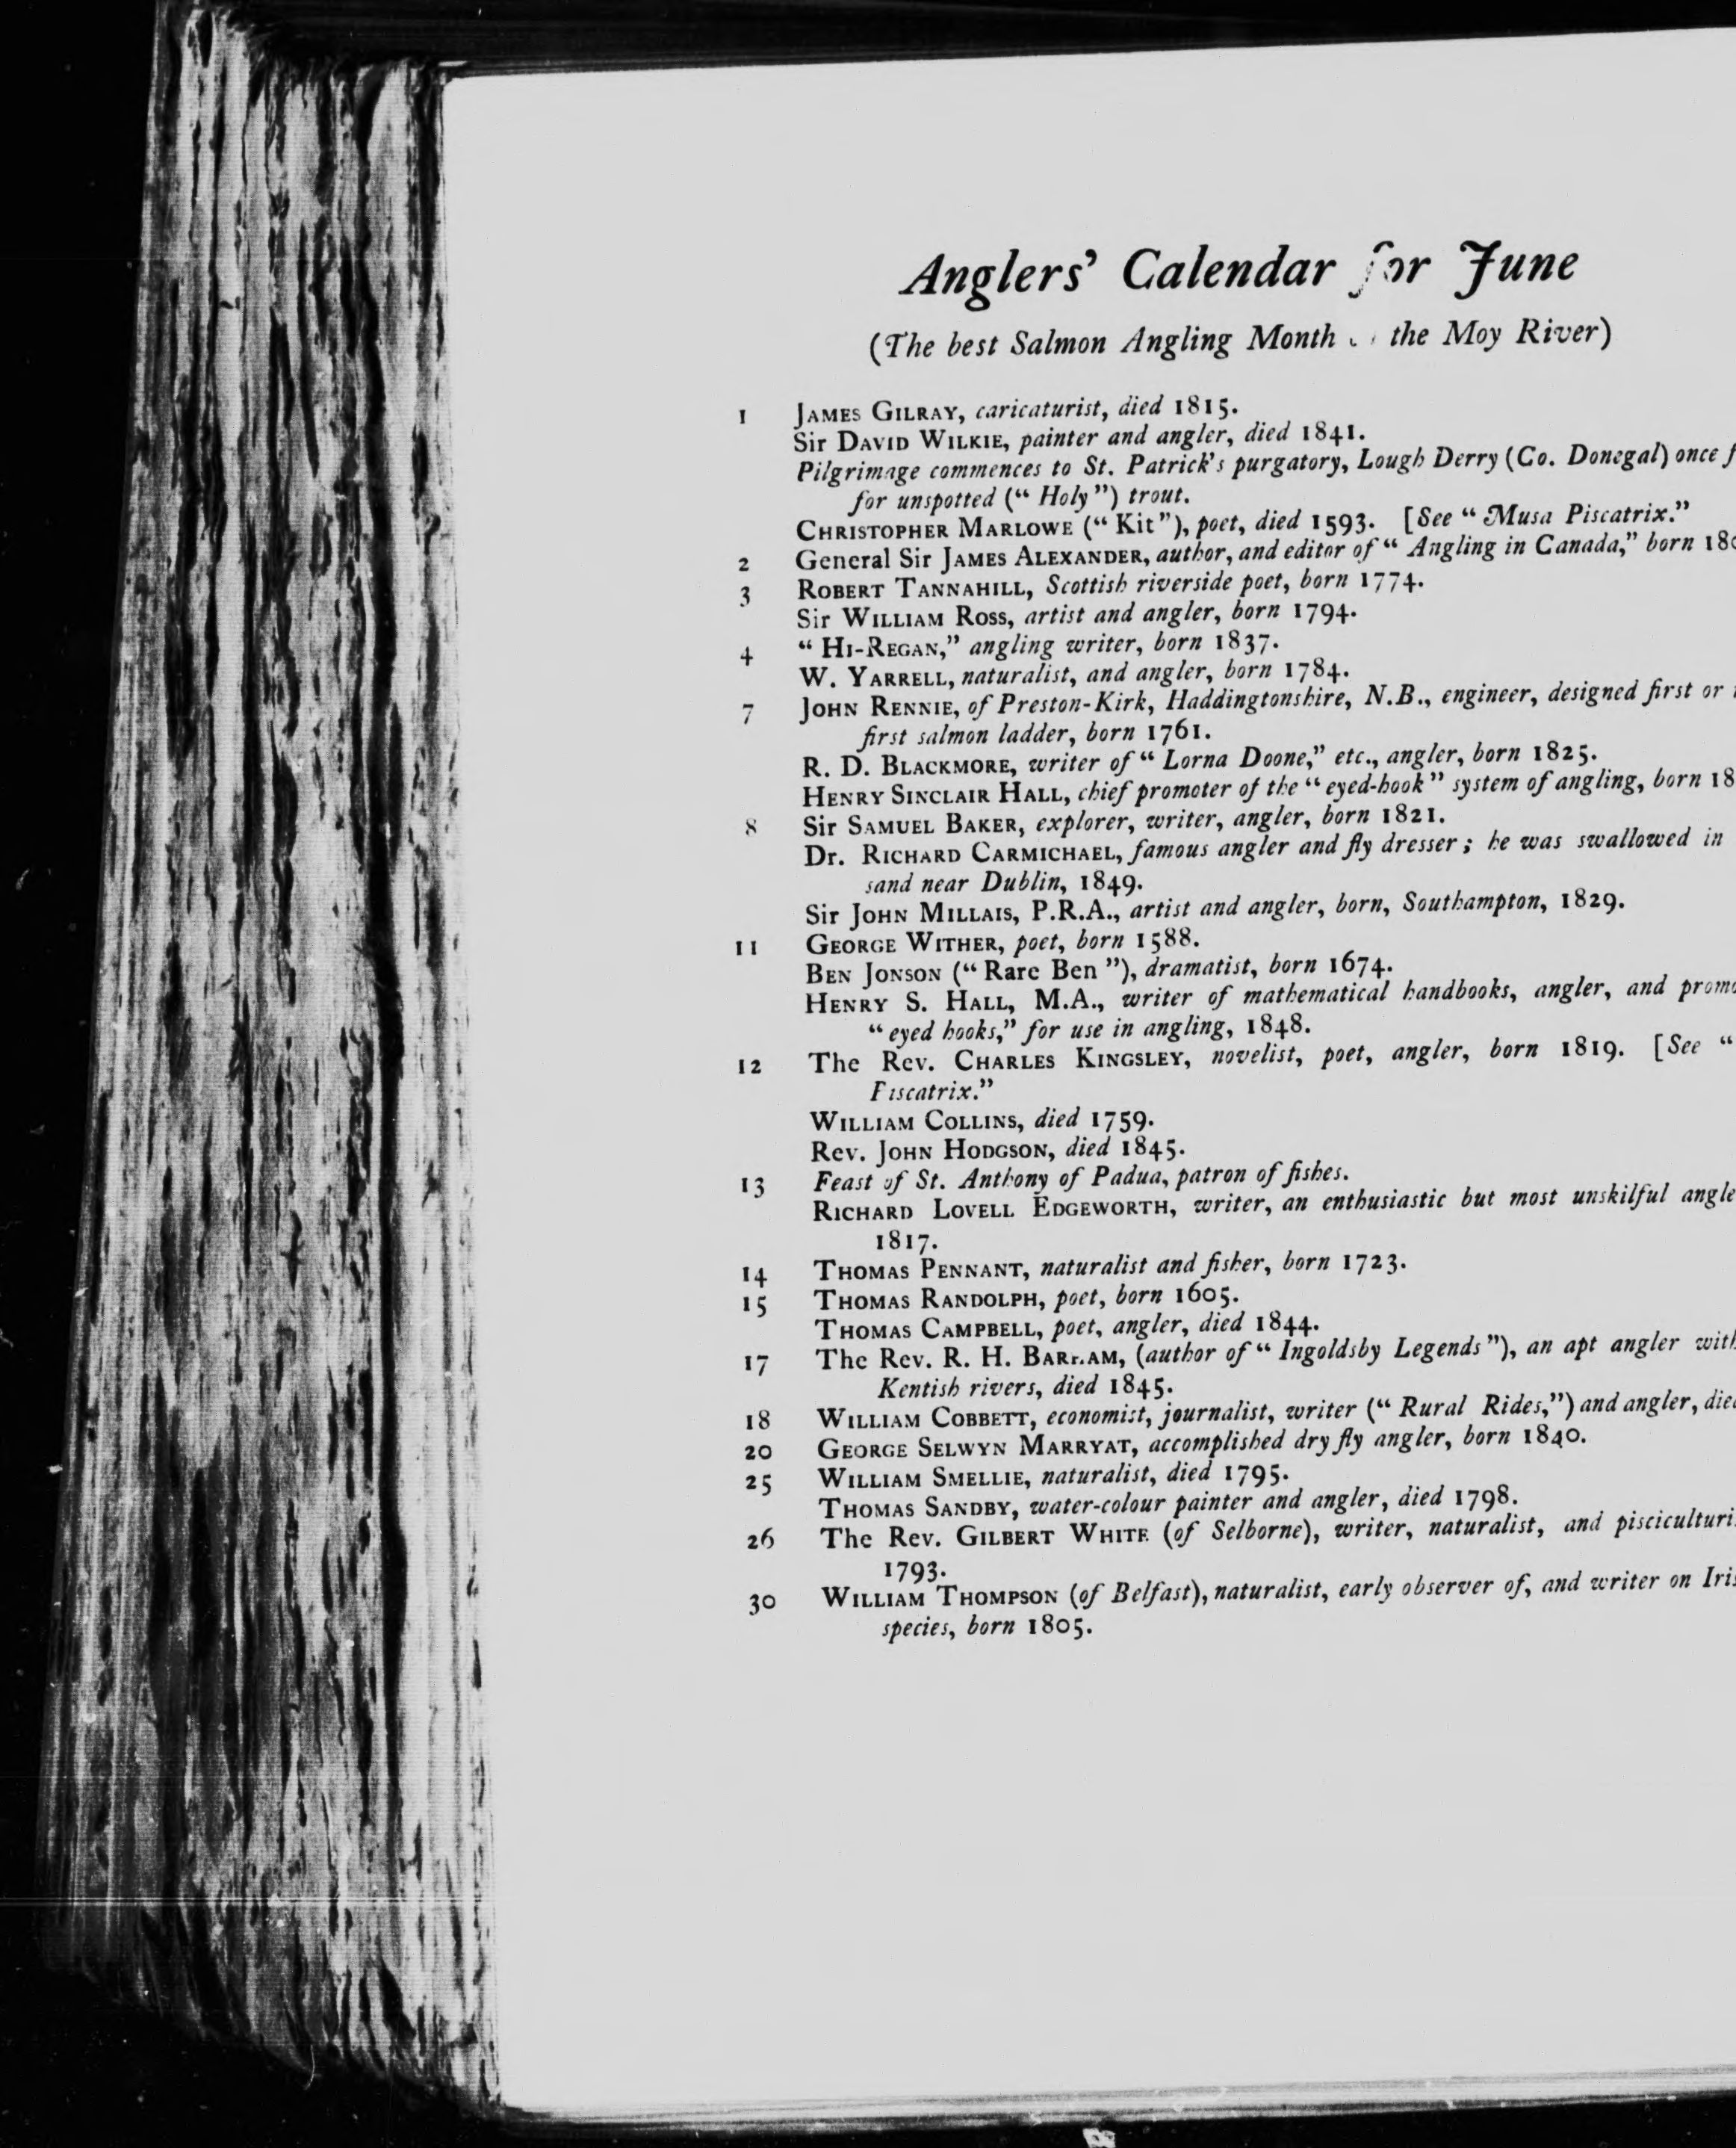 Anglers' Calendar for June
(The best Salmon Angling Month the Moy River)
1 JAMES GILRAY, caricaturist, died 1815.
Sir DAVID WILKIE, painter and angler, died 1841.
Pilgrimage commences to St. Patrick's purgatory, Lough Derry (Co. Donegal) once
for unspotted (“ Holy ”) trout.
CHRISTOPHER MARLOWE (“ Kit ”), poet, died 1593. [See “ Musa Piscatrix.”
2 General Sir JAMES ALEXANDER, author, and editor of “ Angling in Canada,” born
3 ROBERT TANNAHILL, Scottish riverside poet, born 1774.
Sir WILLIAM ROSS, artist and angler, born 1794.
4 “ HI-REGAN,” angling writer, born 1837.
W. YARRELL, naturalist, and angler, born 1784.
7 JOHN RENNIE, of Preston-Kirk, Haddingtonshire, N.B., engineer, designed first or
first salmon ladder, born 1761.
R. D. BLACKMORE, writer of “ Lorna Doone,” etc., angler, born 1825.
HENRY SINCLAIR HALL, chief promoter of the “ eyed-hook ” system of angling, born 18
8 Sir SAMUEL BAKER, explorer, writer, angler, born 1821.
Dr. RICHARD CARMICHAEL, famous angler and fly dresser ; he was swallowed in
sand near Dublin, 1849.
Sir JOHN MILLAIS, P.R.A., artist and angler, born, Southampton, 1829.
11 GEORGE WITHER, poet, born 1588.
BEN JONSON (“ Rare Ben ”), dramatist, born 1674.
HENRY S. HALL, M.A., writer of mathematical handbooks, angler, and promo
“ eyed hooks,” for use in angling, 1848.
12 The Rev. CHARLES KINGSLEY, novelist, poet, angler, born 1819. [See “
Piscatrix.”
WILLIAM COLLINS, died 1759.
Rev. JOHN HODGSON, died 1845.
13 Feast of St. Anthony of Padua, patron of fishes.
RICHARD LOVELL EDGEWORTH, writer, an enthusiastic but most unskilful angle
1817.
14 THOMAS PENNANT, naturalist and fisher, born 1723.
15 THOMAS RANDOLPH, poet, born 1605.
THOMAS CAMPBELL, poet, angler, died 1844.
17 The Rev. R. H. BARHAM, (author of “ Ingoldsby Legends ”), an apt angler with
Kentish rivers, died 1845.
18 WILLIAM COBBETT, economist, journalist, writer (“ Rural Rides,”) and angler, died
20 GEORGE SELWYN MARRYAT, accomplished dry fly angler, born 1840.
25 WILLIAM SMELLIE, naturalist, died 1795.
THOMAS SANDBY, water-colour painter and angler, died 1798.
26 The Rev. GILBERT WHITE (of Selborne), writer, naturalist, and pisciculturi
1793.
30 WILLIAM THOMPSON (of Belfast), naturalist, early observer of, and writer on Iris
species, born 1805.